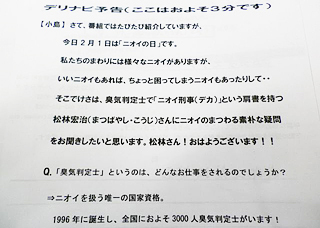 デリナビ予告(ここはおよそ3分です)
【小島】さて、番組ではたびたび紹介していますが、
今日2月1日は「ニオイの日」です。
私たちのまわりには様々なニオイがありますが、
いいニオイもあれば、ちょっと困ってしまうニオイもあったりして・・
そこでけさは、臭気判定士で「ニオイ刑事(デカ)」という肩書を持つ
松林宏治(まつばやし・こうじ)さんにニオイのまつわる素朴な疑問
をお聞きしたいと思います。松林さん!おはようございます!!
Q.「臭気判定士」というのは、どんなお仕事をされるのでしょうか?
⇒ニオイを扱う唯一の国家資格。
1996年に誕生し、全国におよそ3000人臭気判定士がいます!